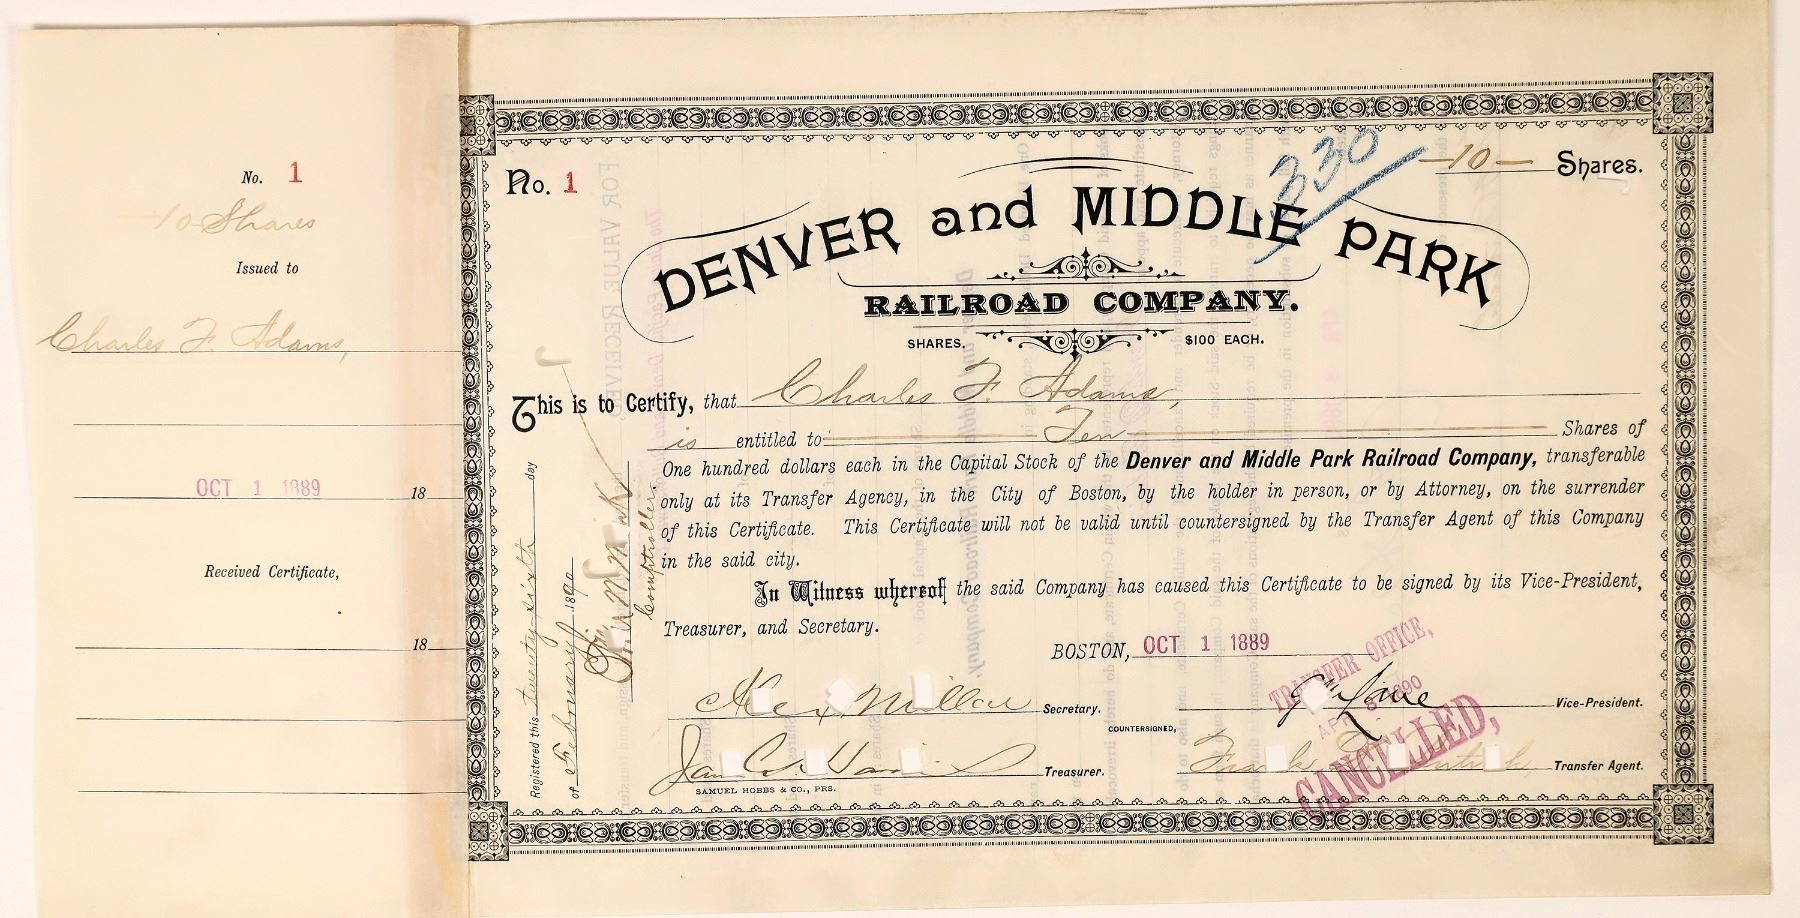 No. 1
10 Shares
Issued to
Charles F. Adams,
OCT 1 1889 18
Received Certificate,
18
No. 1
330
-10- Shares.
DENVER and MIDDLE PARK
RAILROAD COMPANY.
SHARES. $100 EACH.
This is to Certify, that Charles F. Adams,
is entitled to Ten Shares of
One hundred dollars each in the Capital Stock of the Denver and Middle Park Railroad Company, transferable
only at its Transfer Agency, in the City of Boston, by the holder in person, or by Attorney, on the surrender
of this Certificate. This Certificate will not be valid until countersigned by the Transfer Agent of this Company
in the said city.
In Witness whereof the said Company has caused this Certificate to be signed by its Vice-President,
Treasurer, and Secretary.
BOSTON, OCT 1 1889
Alex Millar Secretary.
Vice-President.
COUNTERSIGNED,
Treasurer.
Transfer Agent.
SAMUEL HOBBS & CO., PRS.
TRANSFER OFFICE,
CANCELLED,
Registered this twenty-sixth day
of February 1890
Comptroller.